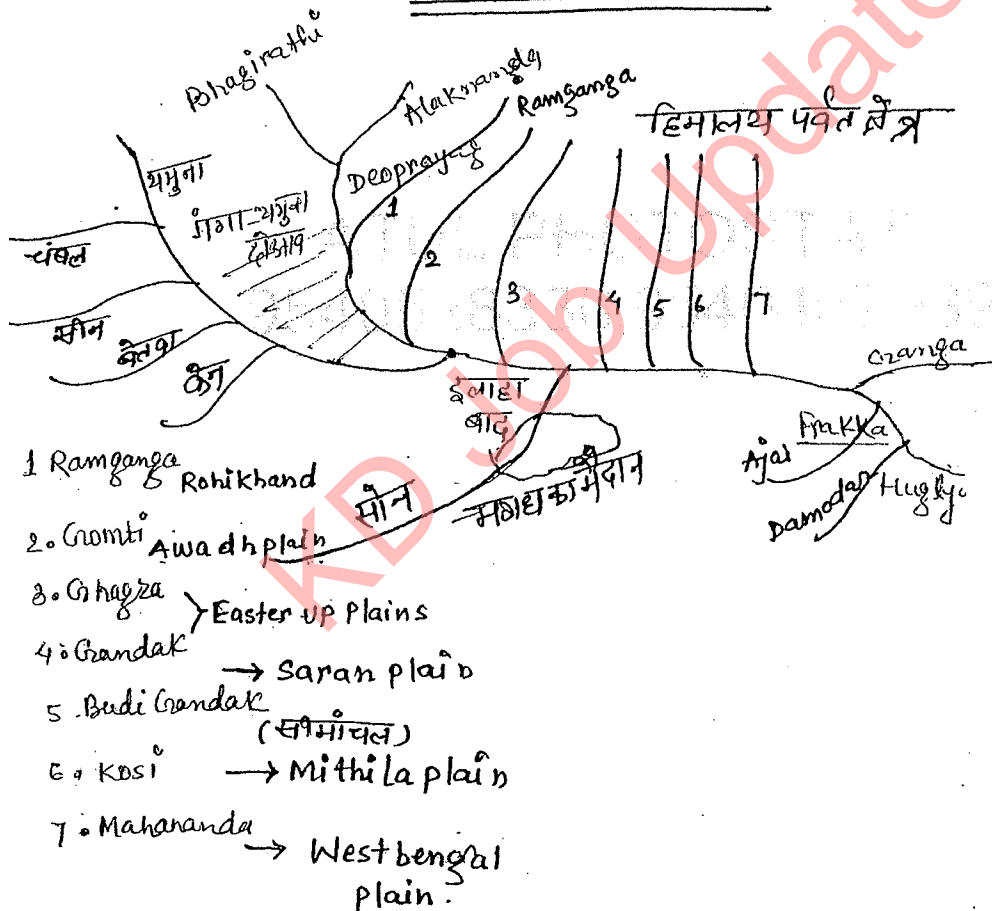 Bhagirathi
Alaknanda
Ramganga
हिमालय पर्वत क्षेत्र
यमुना
Deoprayag
1
गंगा-यमुना
दोआब
चंबल
2
3
4
5
6
7
सीन
बेतवा
केन
Ganga
इलाहा
बाद
Frakka
Ajai
Damodar
Hugly
सोन
मगध का मैदान
1 Ramganga Rohikhand
2. Gomti Awadh plain
3. Ghagra
Easter up Plains
4. Gandak
→ Saran plain
5. Budi Gandak
(सीमांचल)
6. Kosi → Mithila plain
7. Mahananda
→ West bengal
plain.
KD Job Updates